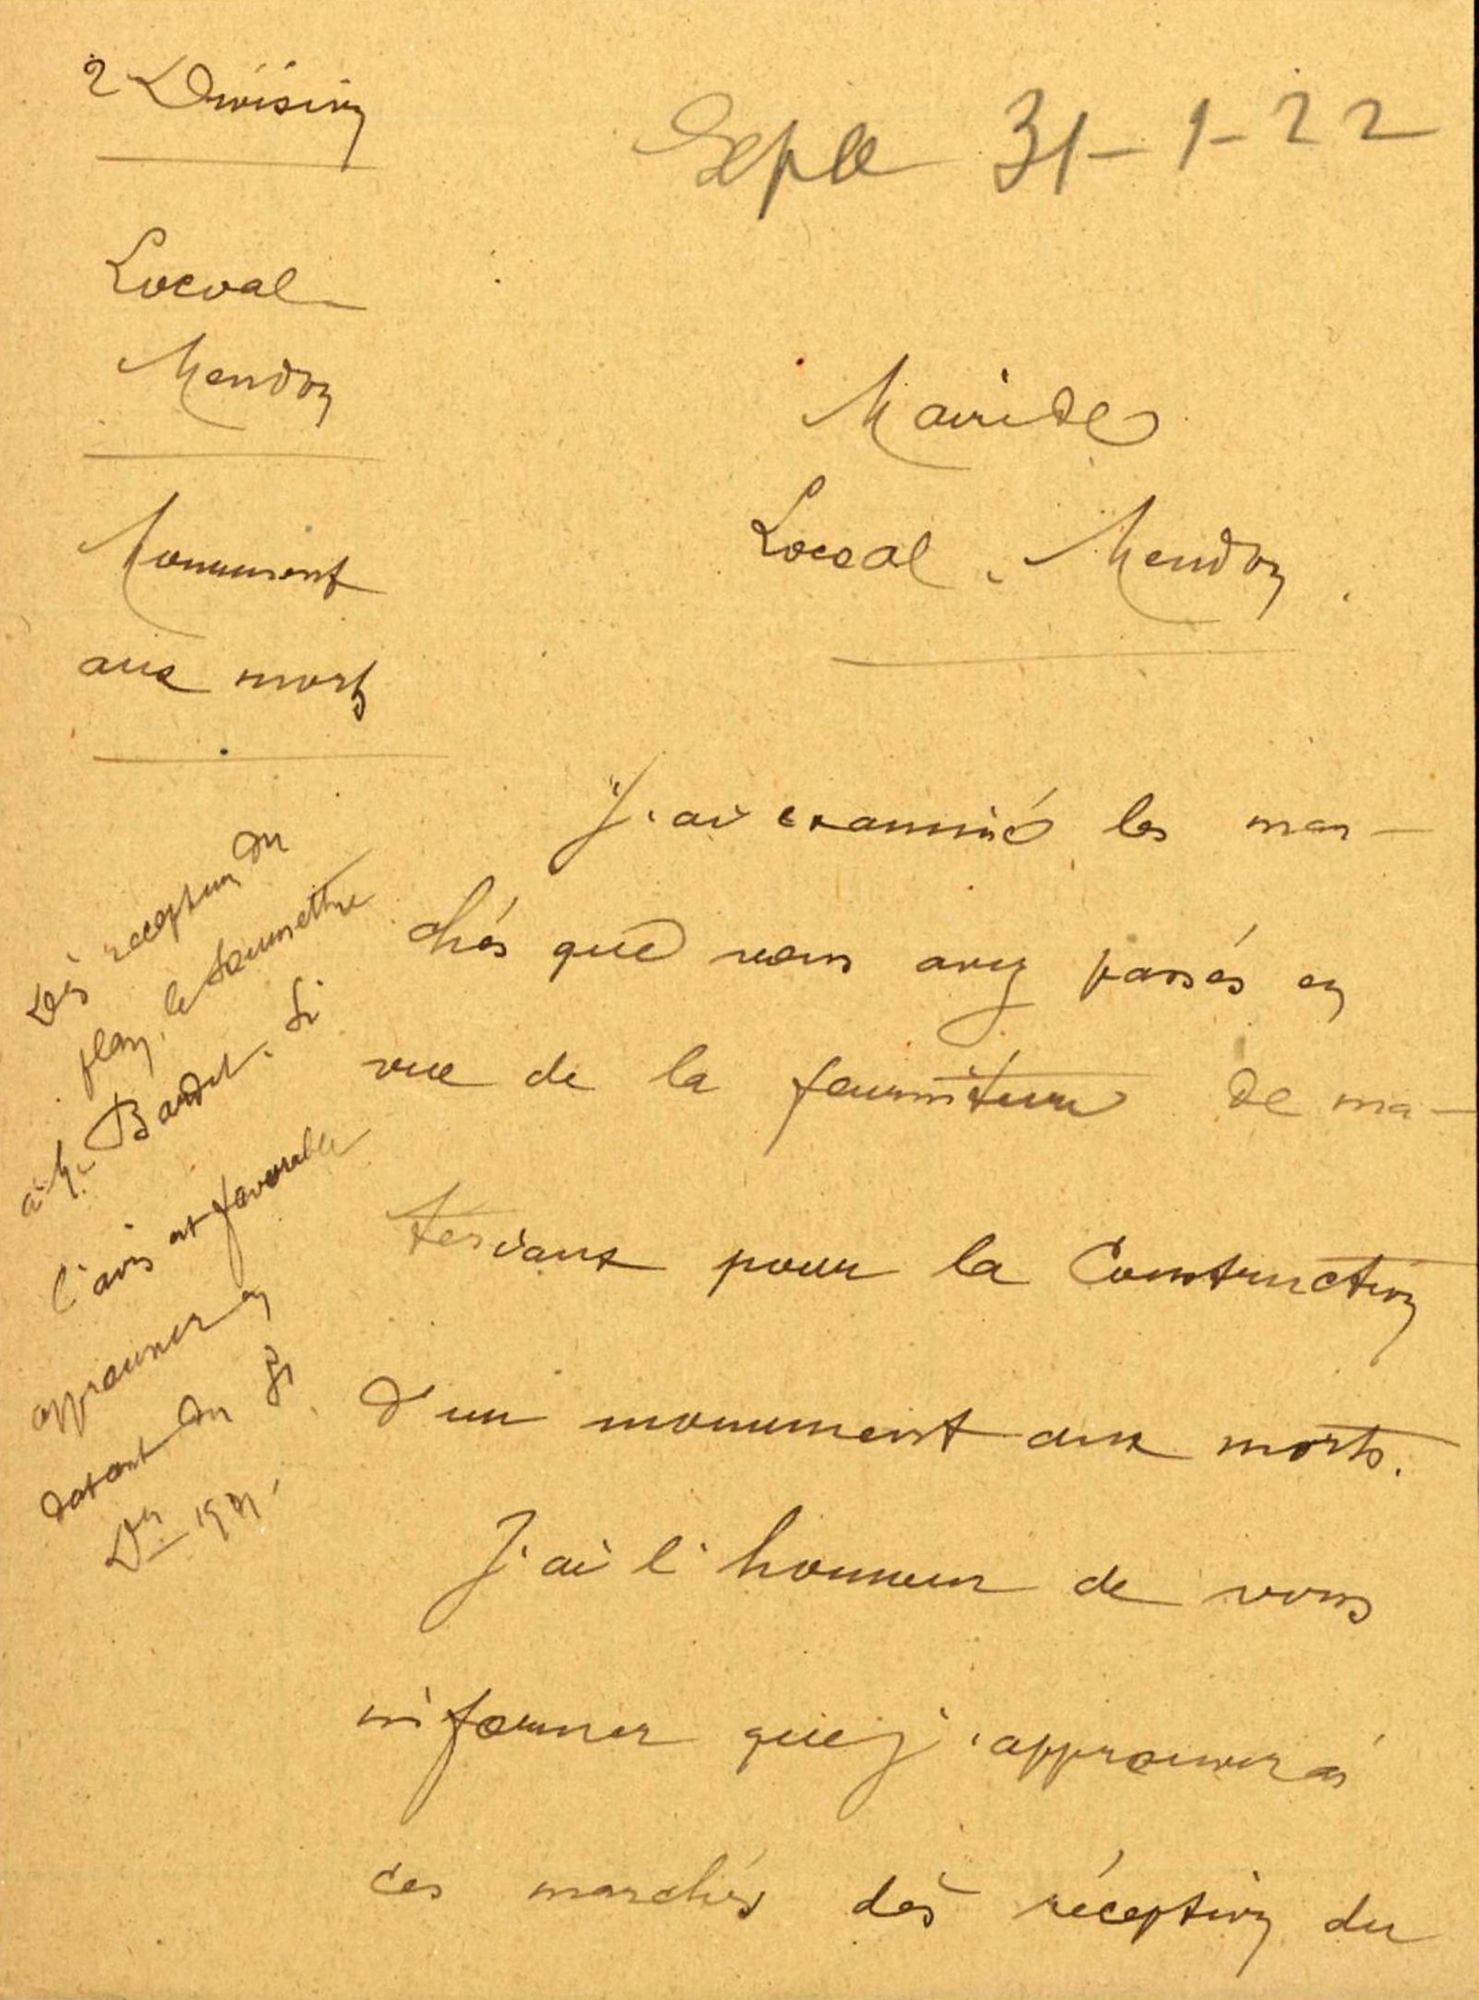 2 Division
Locoal
Mendon
Monument
aux morts
31-1-22
Maire de
Locoal-Mendon.
J'ai examiné les mar-
chés que vous avez passés en
vue de la fourniture de ma-
tériaux pour la Construction
d'un monument aux morts.
J'ai l'honneur de vous
informer que j'approuverai
ces marchés dès réception du
Dès reception du
plan, le soumettre
à M. Baudet. Si
l'avis est favorable
approuver en
datant du 31
1921.